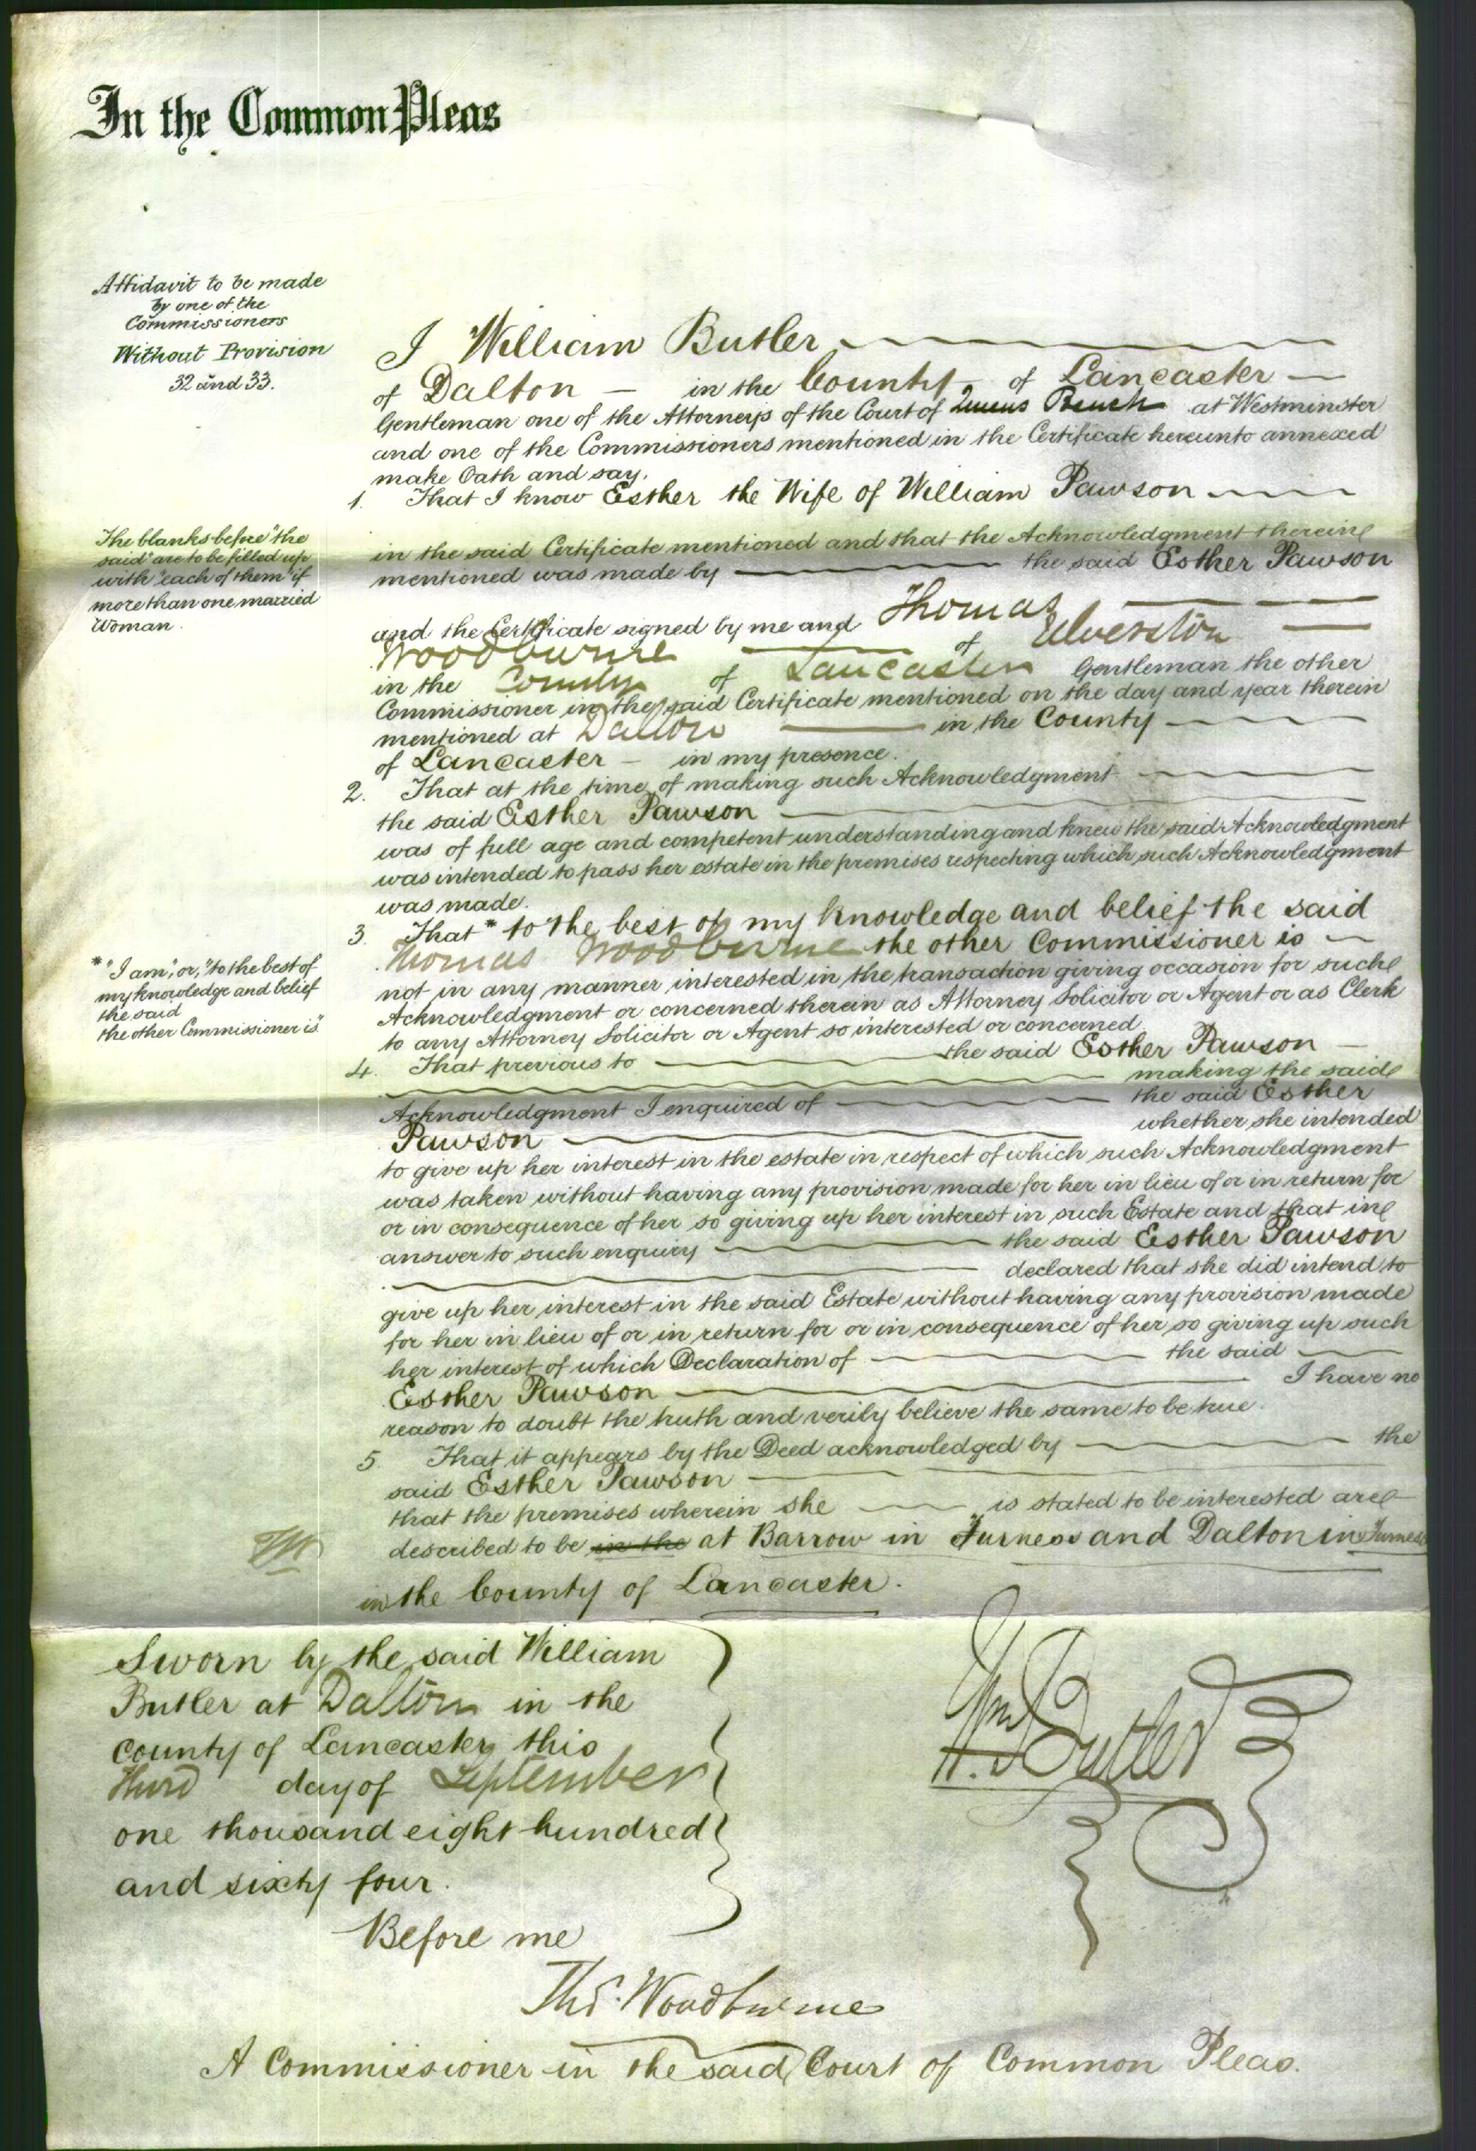 In the Common Pleas
Affidavit to be made
by one of the
Commissioners
Without Provision
32 and 33.
I William Butler
of Dalton in the County of Lancaster
Gentleman one of the Attorneys of the Court of Queens Bench at Westminster
and one of the Commissioners mentioned in the Certificate hereunto annexed
make Oath and say.
1. That I know Esther the Wife of William Pawson
The blanks before "the
said" are to be filled up
with "each of them" if
more than one married
Woman.
in the said Certificate mentioned and that the Acknowledgment therein
mentioned was made by the said Esther Pawson
and the Certificate signed by me and Thomas
Woodburne of Ulverston
in the County of Lancaster Gentleman the other
Commissioner in the said Certificate mentioned on the day and year therein
mentioned at Dalton in the County
of Lancaster in my presence.
2. That at the time of making such Acknowledgment
the said Esther Pawson
was of full age and competent understanding and knew the said Acknowledgment
was intended to pass her estate in the premises respecting which such Acknowledgment
was made.
3. That * to the best of my knowledge and belief the said
Thomas Woodburne the other Commissioner is
not in any manner interested in the transaction giving occasion for such
Acknowledgment or concerned therein as Attorney Solicitor or Agent or as Clerk
to any Attorney Solicitor or Agent so interested or concerned.
* "I am", or, "to the best of
my knowledge and belief
the said
the other Commissioner is"
4. That previous to the said Esther Pawson
making the said
Acknowledgment I enquired of the said Esther
Pawson whether she intended
to give up her interest in the estate in respect of which such Acknowledgment
was taken without having any provision made for her in lieu of or in return for
or in consequence of her so giving up her interest in such Estate and that in
answer to such enquiry the said Esther Pawson
declared that she did intend to
give up her interest in the said Estate without having any provision made
for her in lieu of or in return for or in consequence of her so giving up such
her interest of which Declaration of the said
Esther Pawson I have no
reason to doubt the truth and verily believe the same to be true.
5. That it appears by the Deed acknowledged by the
said Esther Pawson
that the premises wherein she is stated to be interested are
described to be in the at Barrow in Furness and Dalton in Furness
in the County of Lancaster.
Sworn by the said William
Butler at Dalton in the
County of Lancaster this
Third day of September
one thousand eight hundred
and sixty four.
Before me
Wm Butler
Thos. Woodburne
A Commissioner in the said Court of Common Pleas.